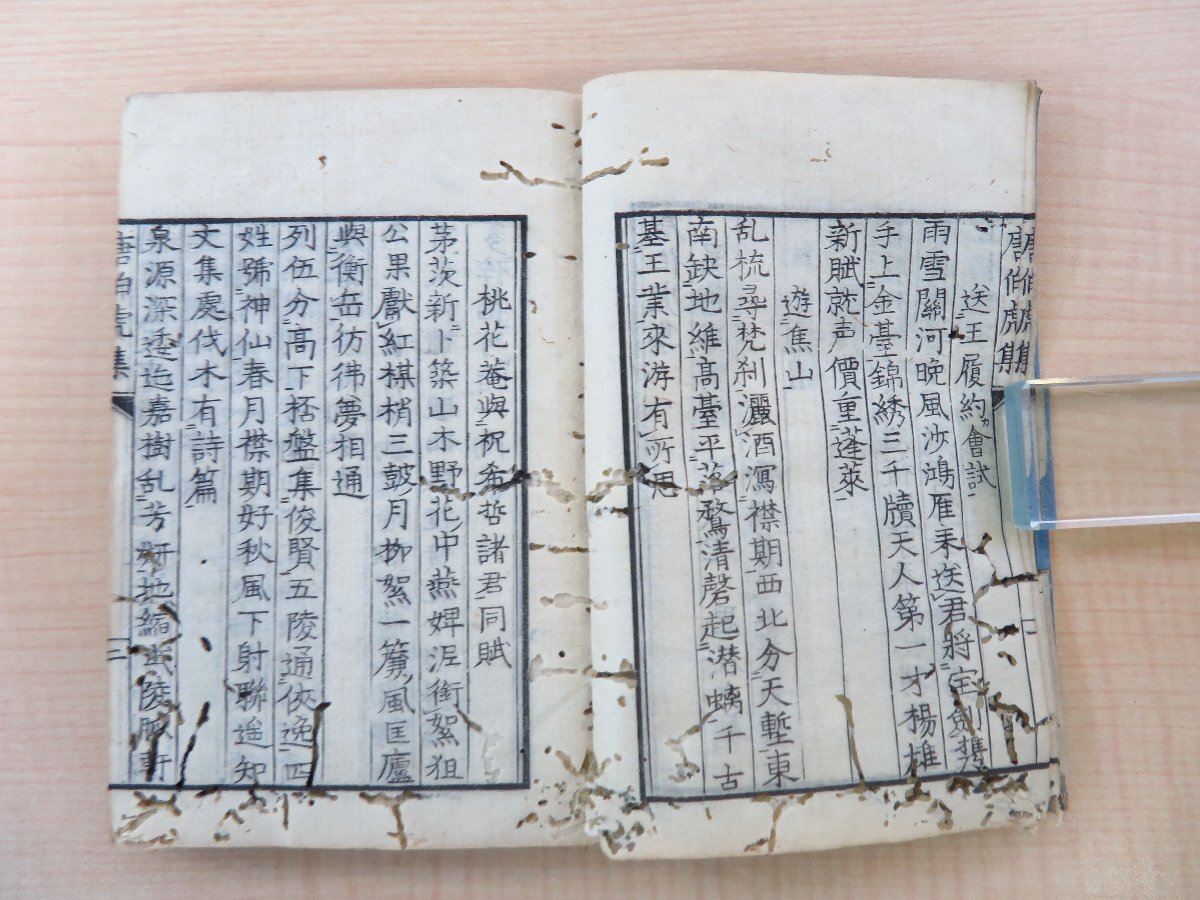 唐伯虎集
送王履約會試
雨雪關河晚風沙鴻雁来送君將宝剣携
手上金臺錦綉三千牘天人第一才楊雄
新賦就声價重蓬萊
遊焦山
乱梳尋梵刹灑酒瀉襟期西北分天塹東
南缺地維高臺平落鶩清磬起潜螭千古
基王業來游有所思
桃花菴與祝希哲諸君同賦
茅茨新卜築山木野花中燕婢泥銜絮狙
公果獻紅棋梢三鼓月柳絮一簾風匡廬
與衡岳彷彿夢相通
列伍分高下栝盤集俊賢五陵通俠逸四
姓號神仙春月襟期好秋風下射聯遥知
文集處伐木有詩篇
泉源深逶迤嘉樹乱芳妍地縮武陵脈軒
唐伯虎集
二